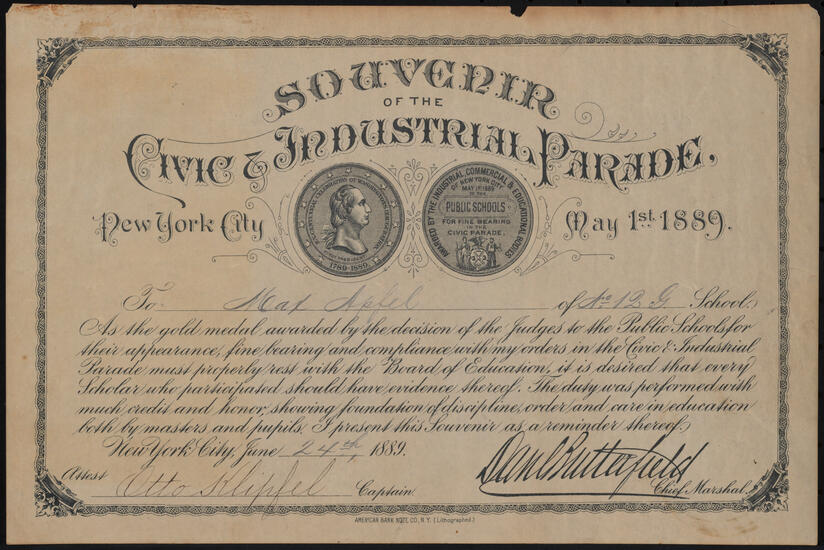 SOUVENIR
OF THE
CIVIC & INDUSTRIAL PARADE.
New York City May 1st. 1889.
1789-1889.
AWARDED BY THE INDUSTRIAL COMMERCIAL & EDUCATIONAL BODIES
OF NEW YORK CITY
MAY 1st 1889
TO THE
PUBLIC SCHOOLS
FOR FINE BEARING
IN THE
CIVIC PARADE.
To Max Apfel of No 12 G School,
As the gold medal awarded by the decision of the Judges to the Public Schools for
their appearance, fine bearing and compliance with my orders in the Civic & Industrial
Parade must properly rest with the Board of Education, it is desired that every
Scholar who participated should have evidence thereof. The duty was performed with
much credit and honor, showing foundation of discipline, order and care in education
both by masters and pupils. I present this Souvenir as a reminder thereof.
New York City, June 24th, 1889.
Danl Butterfield
Attest Otto Klipfel Captain. Chief Marshal.
AMERICAN BANK NOTE CO. N.Y. (Lithographed.)